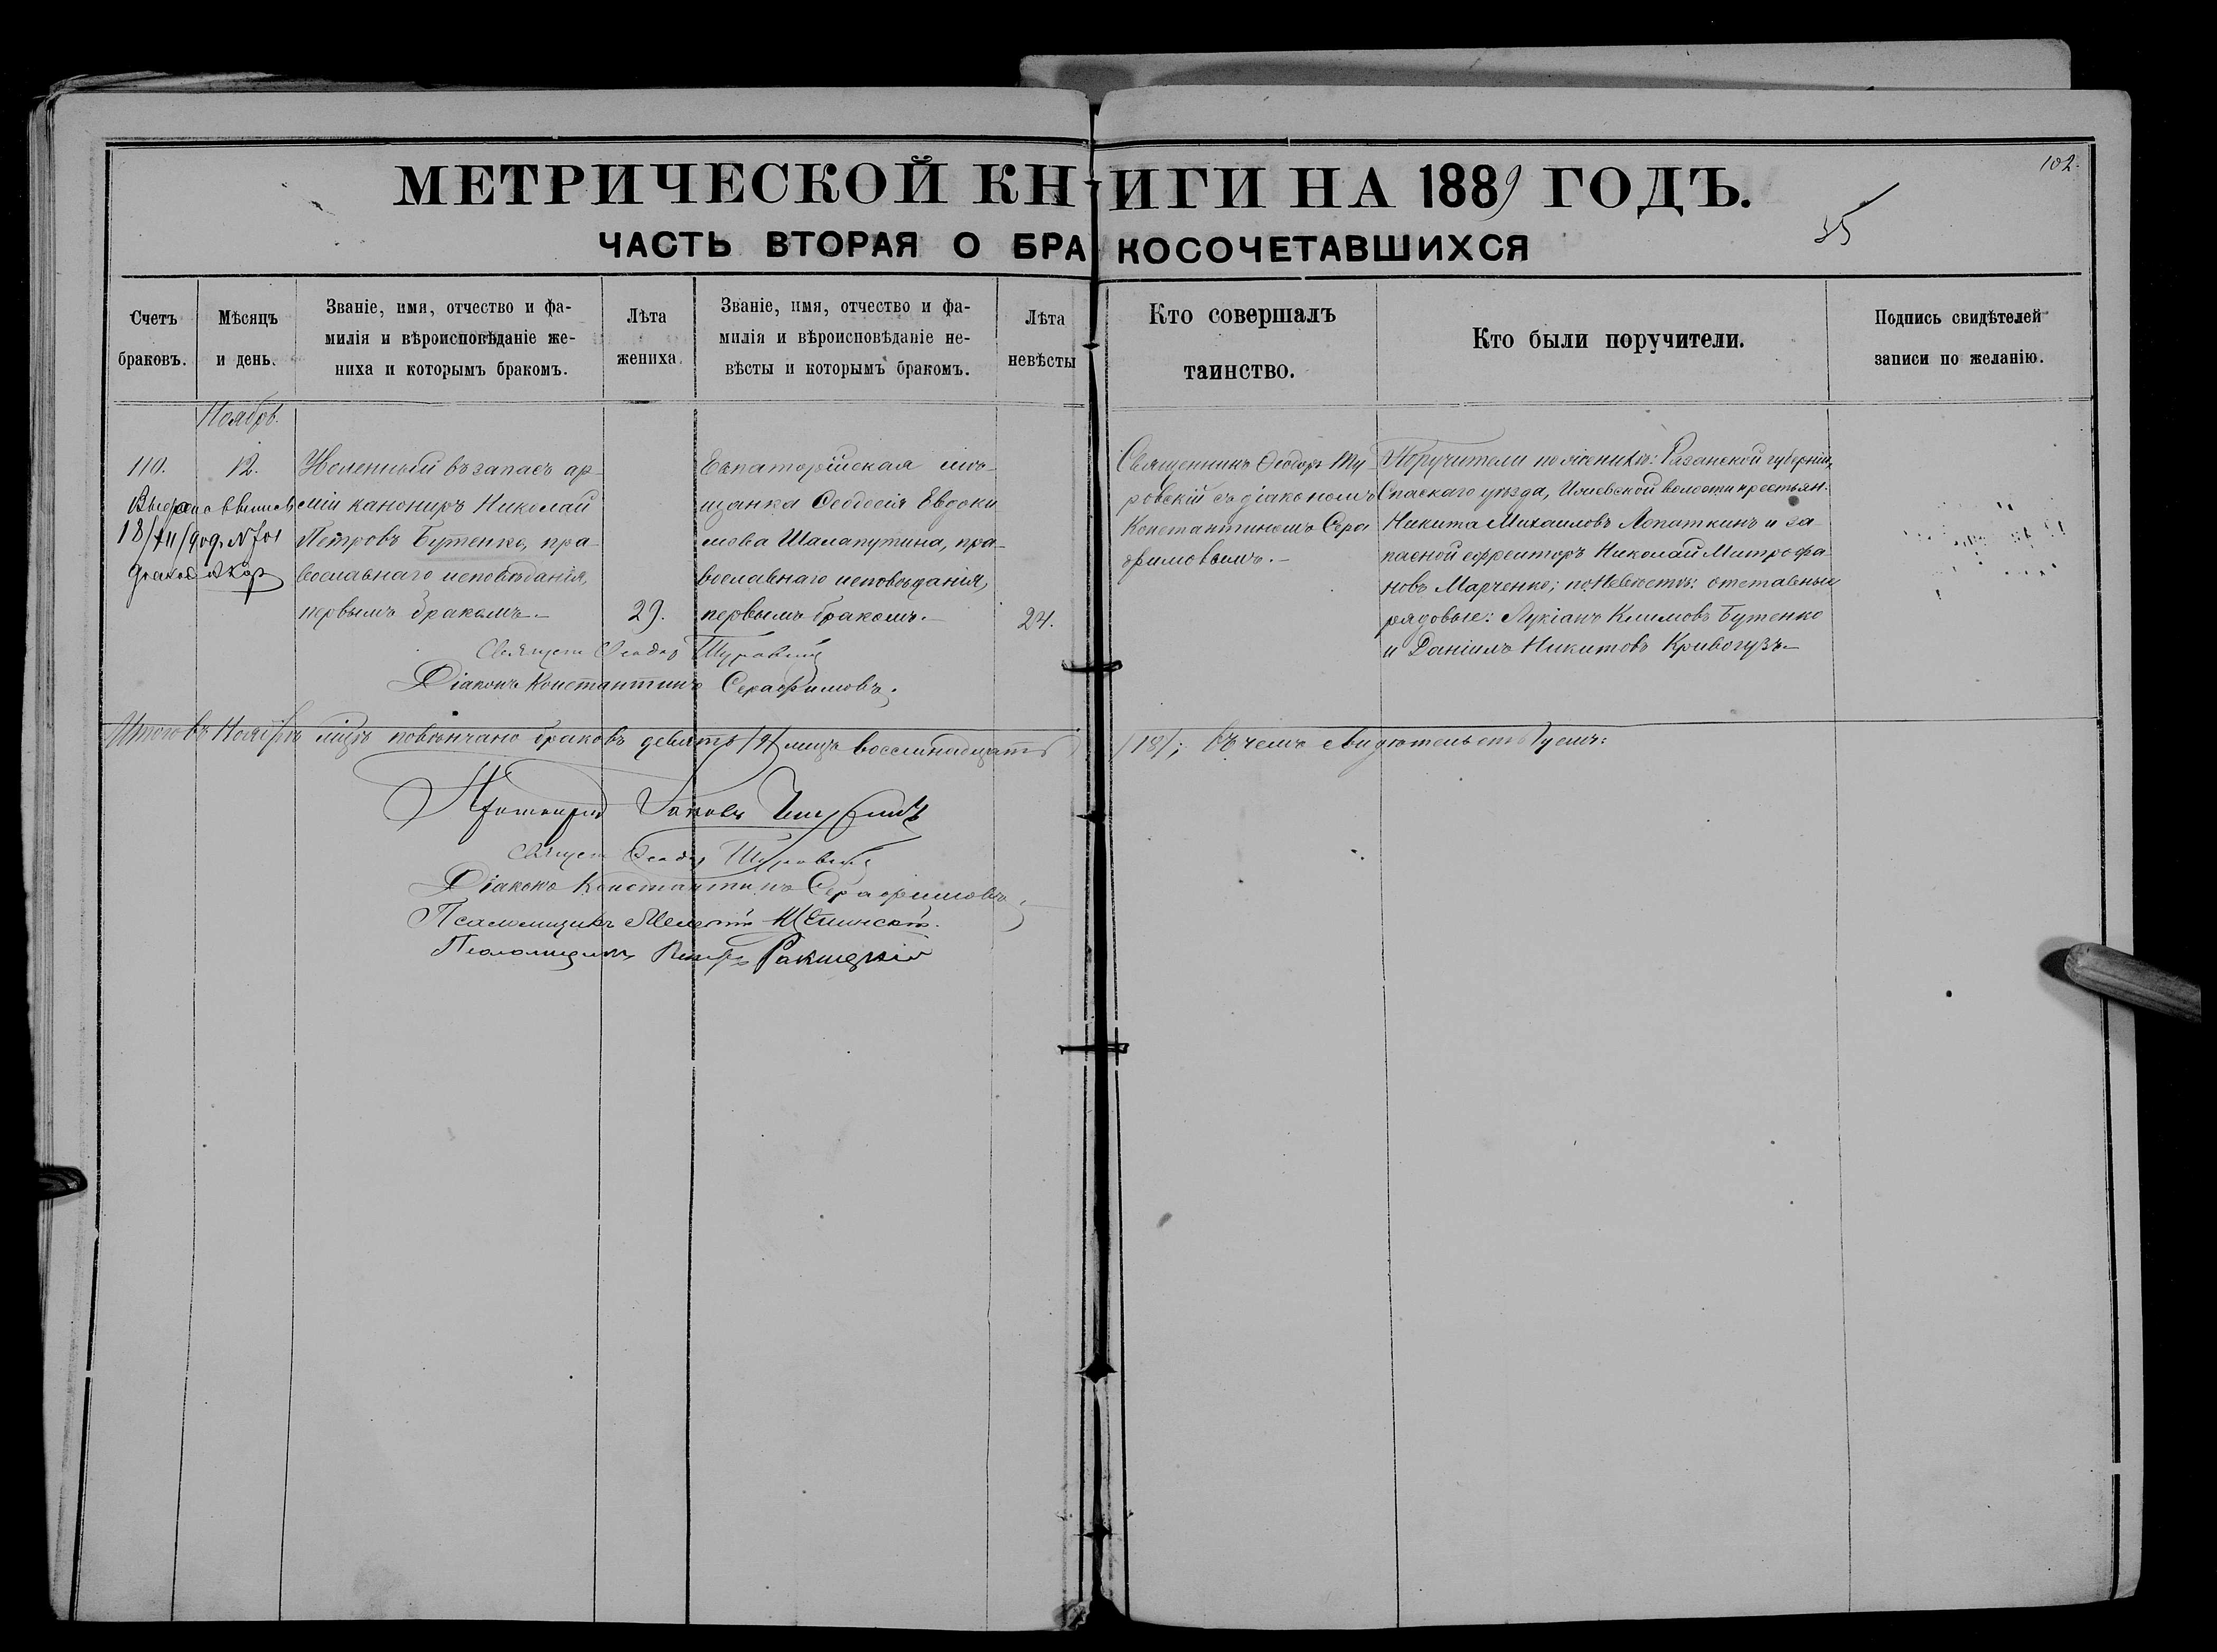 102.
МЕТРИЧЕСКОЙ КНИГИ НА 1889 ГОДЪ.
35
ЧАСТЬ ВТОРАЯ О БРАКОСОЧЕТАВШИХСЯ
Счетъ
браковъ.
Мѣсяцъ
и день.
Званіе, имя, отчество и фа-
милія и вѣроисповѣданіе же-
ниха и которымъ бракомъ.
Лѣта
жениха.
Званіе, имя, отчество и фа-
милія и вѣроисповѣданіе не-
вѣсты и которымъ бракомъ.
Лѣта
невѣсты
Кто совершалъ
таинство.
Кто были поручители.
Подпись свидѣтелей
записи по желанію.
Ноябрь.
110.
12.
Уволенный въ запасъ ар-
міи канониръ Николай
Петровъ Бутенко, пра-
вославнаго исповѣданія,
первымъ бракомъ.-
29.
Евпаторійская мѣ-
щанка Ѳеодосія Евдоки
мова Шалапутина, пра-
вославнаго исповѣданія,
первымъ бракомъ.-
24.
Священникъ Ѳеодоръ Ту-
ровскій съ діакономъ
Константиномъ Сера
фимовымъ.-
Поручители по женихѣ: Рязанской губерніи,
Спаскаго уѣзда, волости крестьян.
Никита Михаиловъ Лопаткинъ и за-
пасной ефрейторъ Николай Митрофа
новъ Марченко; по Невѣстѣ: отставные
рядовые: Лукіанъ Климовъ Бутенко
и Даніилъ Никитовъ Кривогузъ-
18/XII/909. N 701
Священ Ѳеодор Туровскій
Діаконъ Константинъ Серафимовъ.
Итого въ Ноябрѣ мцѣ повѣнчано браковъ девять /9/ лицъ восемнадцать /18/; въ чемъ свидѣтельствуемъ:
Протоіерей Іаковъ
Священ Ѳеодор Туровскій
Діаконъ Константинъ Серафимовъ
Псаломщикъ
Псаломщикъ Ракицкій